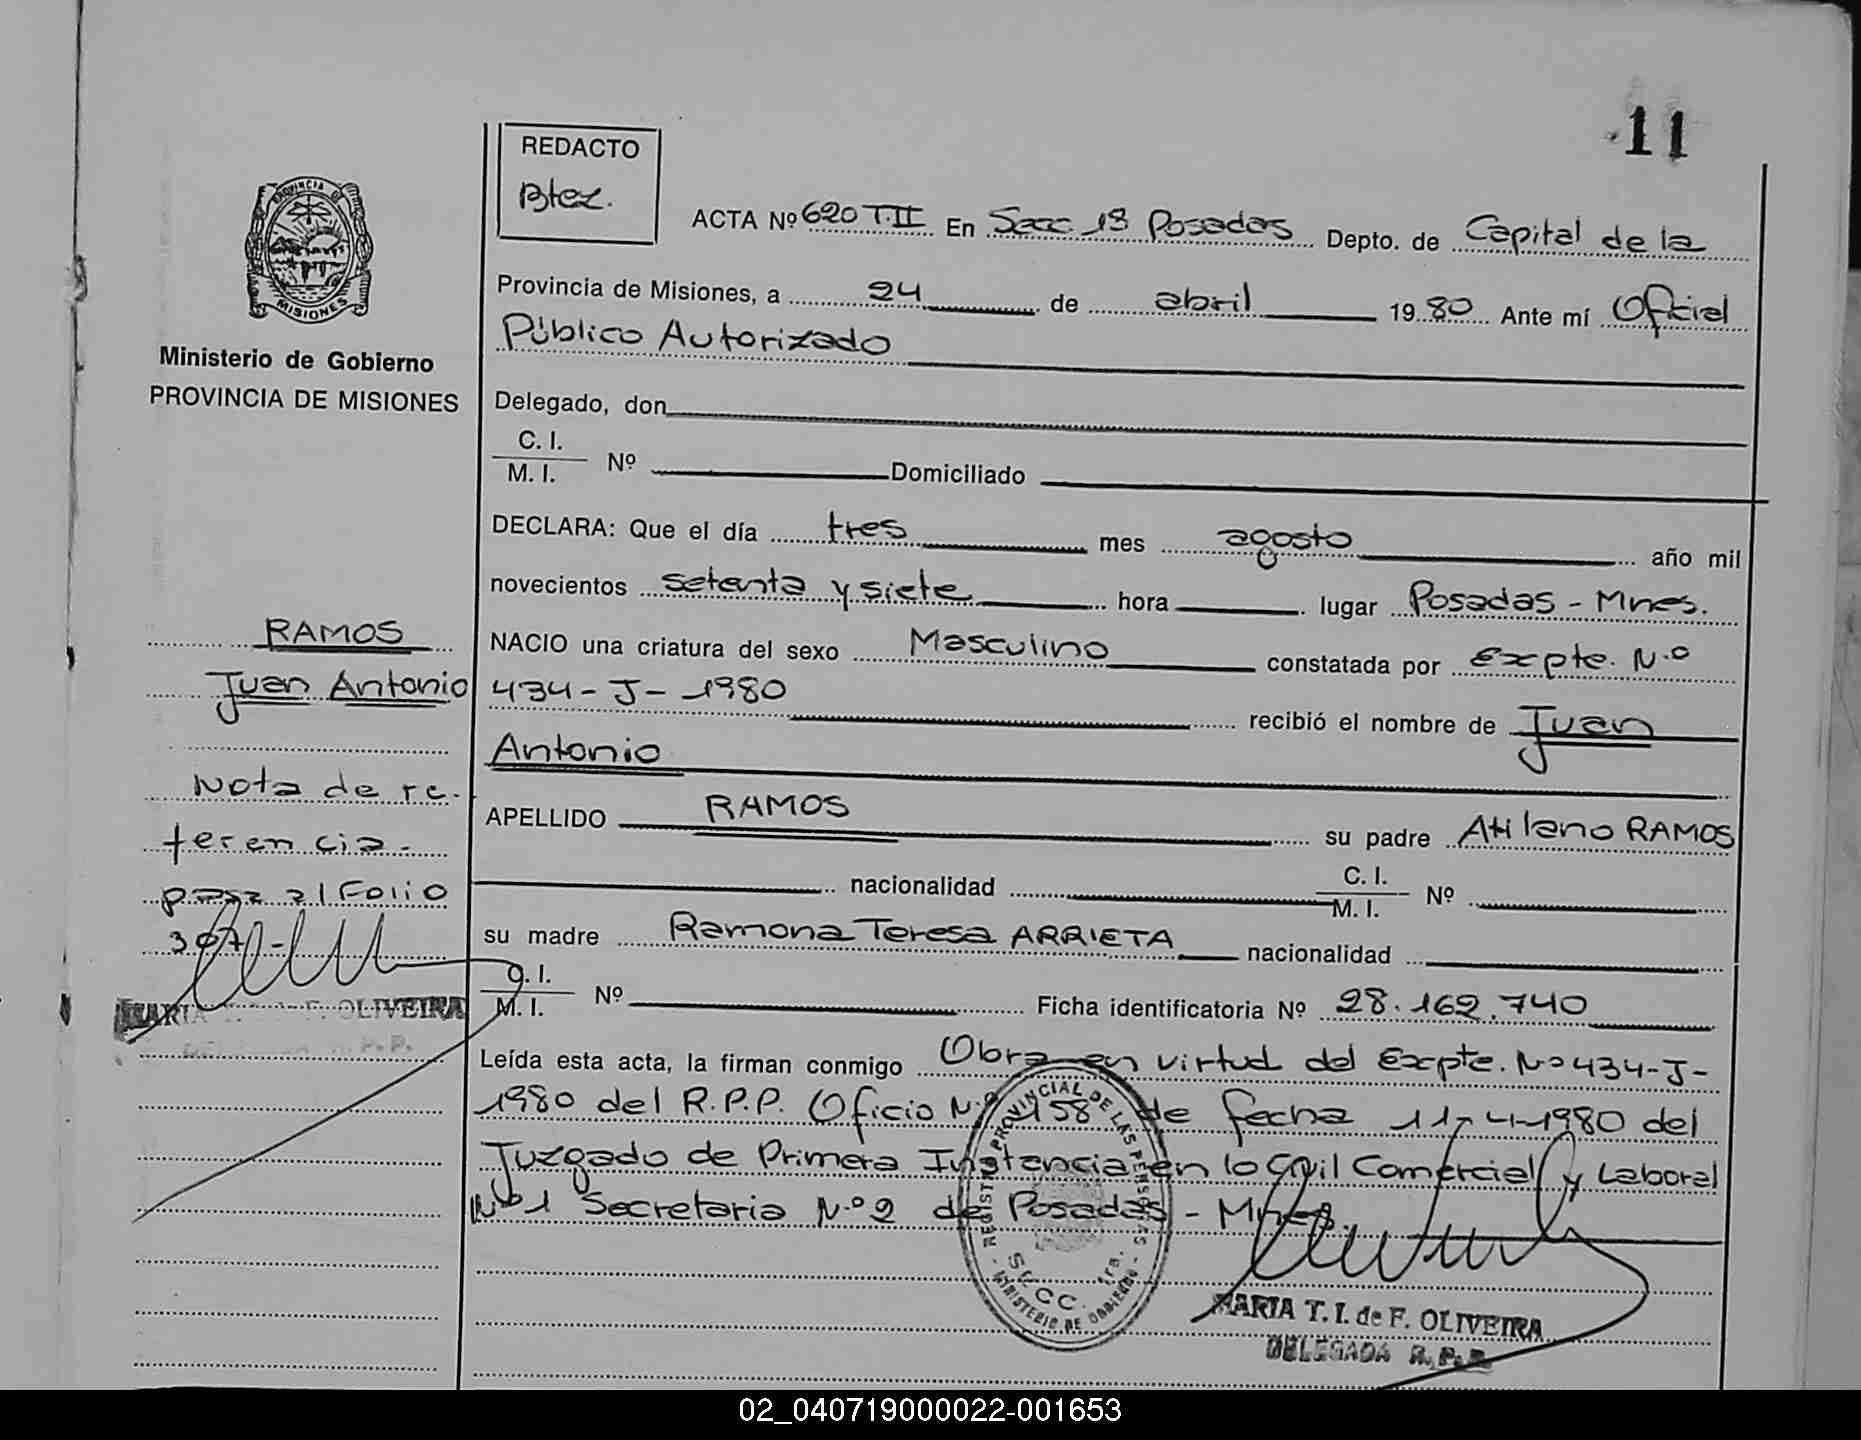 11
REDACTO
Btez.
ACTA Nº 620 T.II En Secc 1ª Posadas Depto. de Capital de la
PROVINCIA DE
MISIONES
Ministerio de Gobierno
PROVINCIA DE MISIONES
Provincia de Misiones, a 24 de abril 1980 Ante mí Oficial
Público Autorizado
Delegado, don
C. I.
M. I. Nº Domiciliado
DECLARA: Que el día tres mes agosto año mil
novecientos setenta y siete hora lugar Posadas - Mnes.
NACIO una criatura del sexo Masculino constatada por Expte. N.º
434 - J - 1980 recibió el nombre de Juan
Antonio
APELLIDO RAMOS su padre Atilano RAMOS
nacionalidad C. I.
M. I. Nº
su madre Ramona Teresa ARRIETA nacionalidad
C. I.
M. I. Nº Ficha identificatoria Nº 28.162.740
Leída esta acta, la firman conmigo Obra en virtud del Expte. Nº 434-J-
1980 del R.P.P. Oficio N.º 158 de fecha 11-4-1980 del
Juzgado de Primera Instancia en lo Civil Comercial y Laboral
Nº 1 Secretaria N.º 2 de Posadas - Mnes.
RAMOS
Juan Antonio
Nota de re-
ferencia -
pasa al Folio
307 -
MARIA F. OLIVEIRA
R. P. P.
REGISTRO PROVINCIAL DE LAS PERSONAS
SECC. 1ra.
- MINISTERIO DE GOBIERNO -
MARIA T. I. de F. OLIVEIRA
DELEGADA R. P. P.
02_040719000022-001653